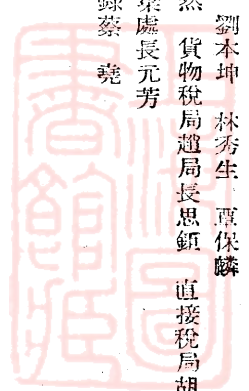 劉本坤　林秀生　覃保麟
然　貨物稅局趙局長思鉅　直接稅局胡
葉處長元芳
錄蔡　堯